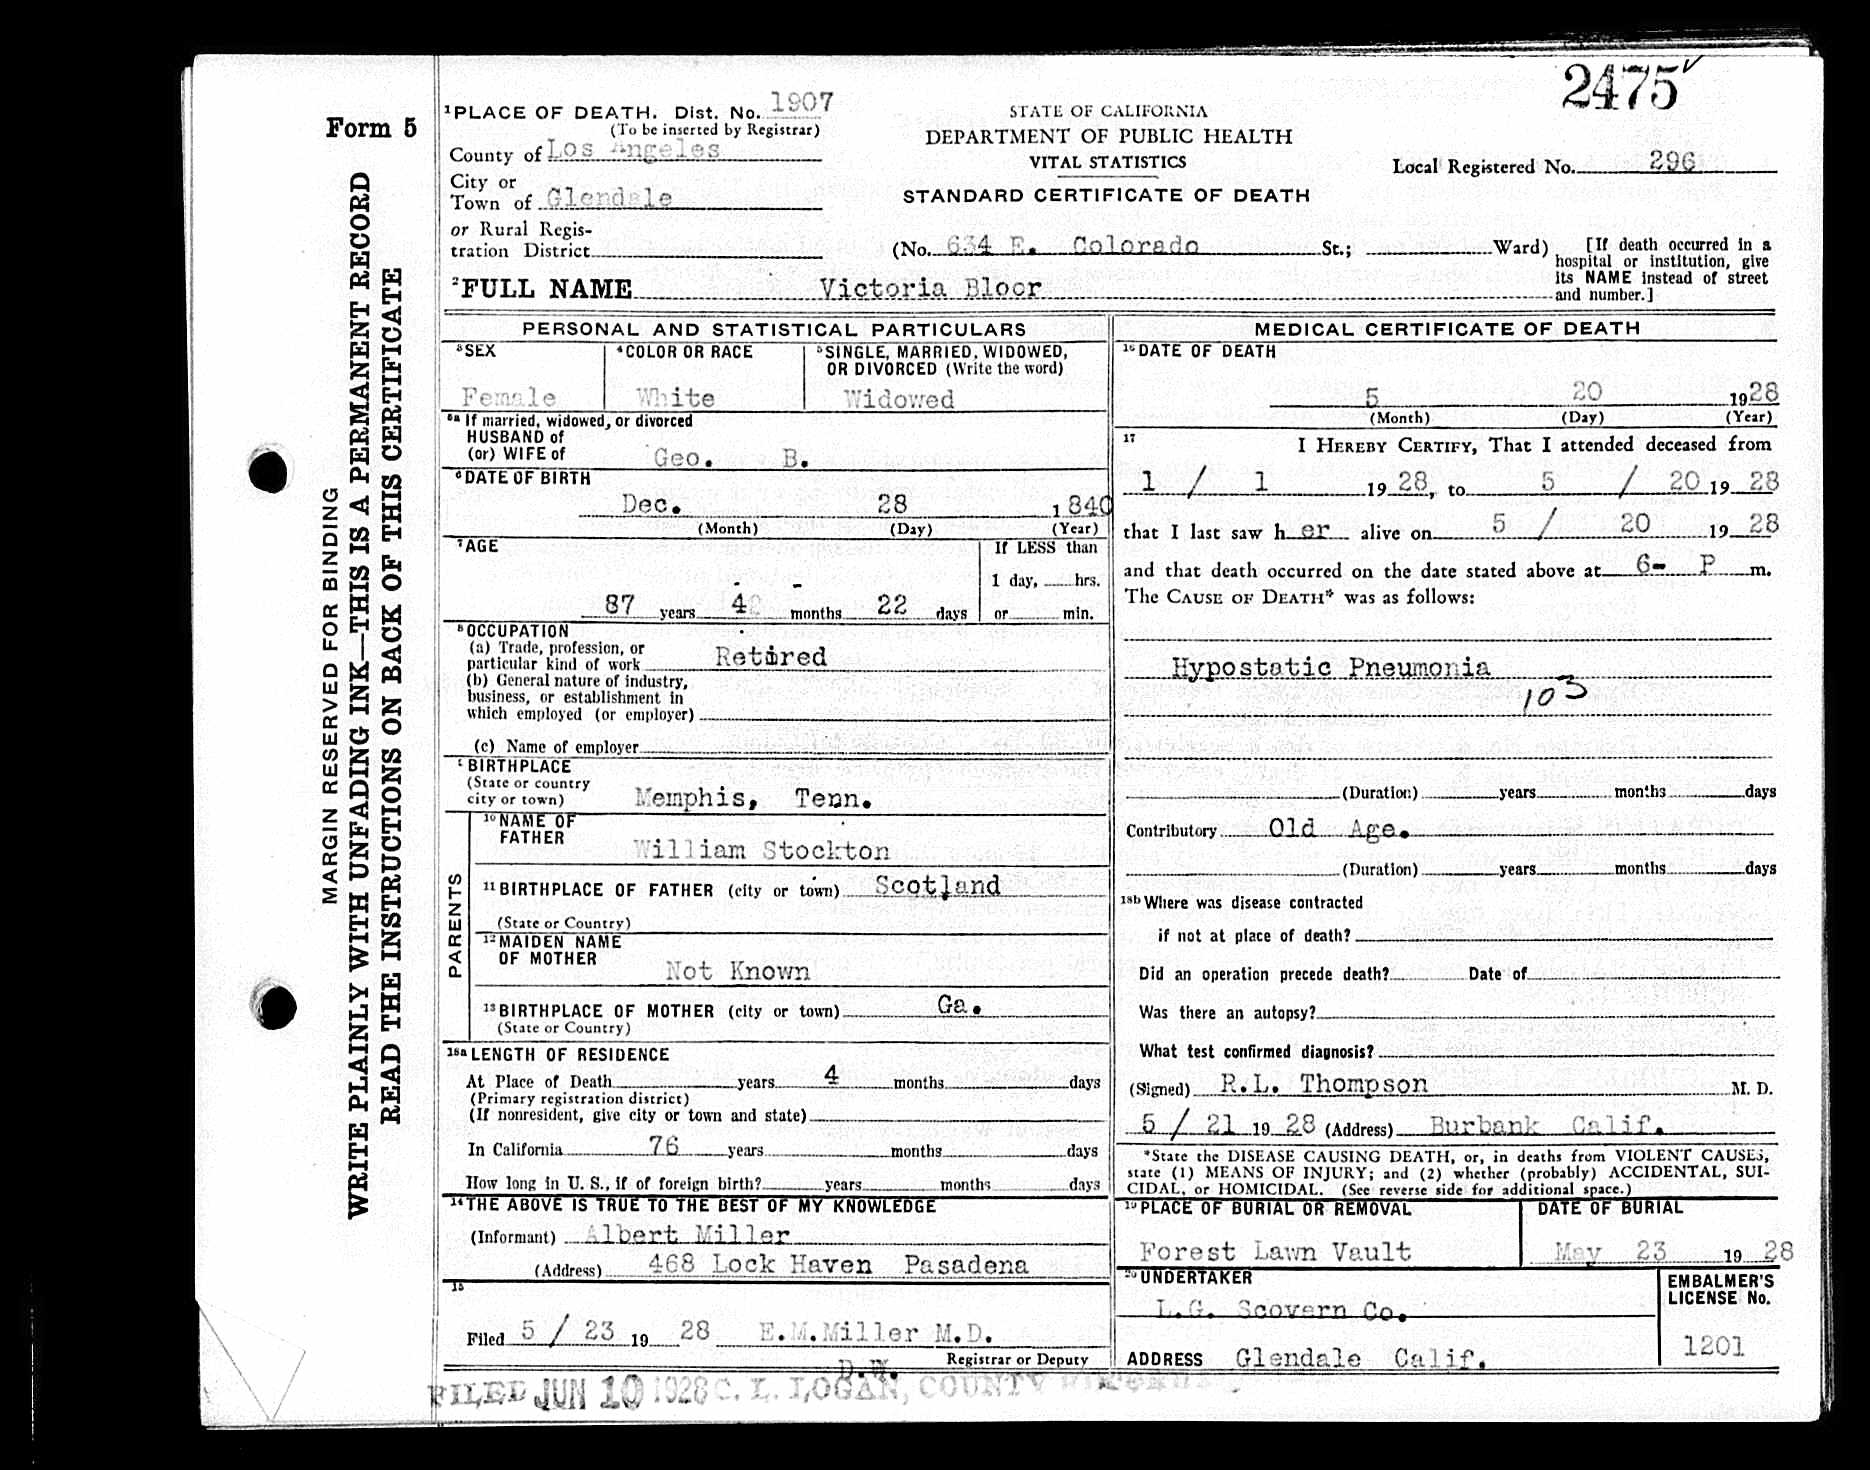 2475
Form 5
MARGIN RESERVED FOR BINDING
WRITE PLAINLY WITH UNFADING INK—THIS IS A PERMANENT RECORD
READ THE INSTRUCTIONS ON BACK OF THIS CERTIFICATE
1 PLACE OF DEATH. Dist. No. 1907
(To be inserted by Registrar)
County of Los Angeles
City or
Town of Glendale
or Rural Regis-
tration District
STATE OF CALIFORNIA
DEPARTMENT OF PUBLIC HEALTH
VITAL STATISTICS
STANDARD CERTIFICATE OF DEATH
Local Registered No. 296
(No. 634 E. Colorado St.; Ward)
[If death occurred in a
hospital or institution, give
its NAME instead of street
and number.]
2 FULL NAME Victoria Bloor
PERSONAL AND STATISTICAL PARTICULARS
3 SEX
Female
4 COLOR OR RACE
White
5 SINGLE, MARRIED, WIDOWED,
OR DIVORCED (Write the word)
Widowed
5a If married, widowed, or divorced
HUSBAND of
(or) WIFE of Geo. B.
6 DATE OF BIRTH
Dec. 28 1840
(Month) (Day) (Year)
7 AGE
87 years 4 months 22 days
If LESS than
1 day, hrs.
or min.
8 OCCUPATION
(a) Trade, profession, or
particular kind of work Retired
(b) General nature of industry,
business, or establishment in
which employed (or employer)
(c) Name of employer
9 BIRTHPLACE
(State or country
city or town) Memphis, Tenn.
PARENTS
10 NAME OF
FATHER William Stockton
11 BIRTHPLACE OF FATHER (city or town) Scotland
(State or Country)
12 MAIDEN NAME
OF MOTHER Not Known
13 BIRTHPLACE OF MOTHER (city or town) Ga.
(State or Country)
18a LENGTH OF RESIDENCE
At Place of Death years 4 months days
(Primary registration district)
(If nonresident, give city or town and state)
In California 76 years months days
How long in U. S., if of foreign birth? years months days
14 THE ABOVE IS TRUE TO THE BEST OF MY KNOWLEDGE
(Informant) Albert Miller
(Address) 468 Lock Haven Pasadena
15
Filed 5 / 23 19 28 E.M.Miller M.D.
Registrar or Deputy
FILED JUN 10 1928 C. L. LOGAN, COUNTY
MEDICAL CERTIFICATE OF DEATH
16 DATE OF DEATH
5 20 1928
(Month) (Day) (Year)
17 I HEREBY CERTIFY, That I attended deceased from
1 / 1 19 28, to 5 / 20 19 28
that I last saw h er alive on 5 / 20 19 28
and that death occurred on the date stated above at 6- P m.
The CAUSE OF DEATH* was as follows:
Hypostatic Pneumonia
103
(Duration) years months days
Contributory Old Age.
(Duration) years months days
18b Where was disease contracted
if not at place of death?
Did an operation precede death? Date of
Was there an autopsy?
What test confirmed diagnosis?
(Signed) R.L. Thompson M. D.
5 / 21 19 28 (Address) Burbank Calif.
*State the DISEASE CAUSING DEATH, or, in deaths from VIOLENT CAUSES,
state (1) MEANS OF INJURY; and (2) whether (probably) ACCIDENTAL, SUI-
CIDAL, or HOMICIDAL. (See reverse side for additional space.)
19 PLACE OF BURIAL OR REMOVAL
Forest Lawn Vault
DATE OF BURIAL
May 23 19 28
20 UNDERTAKER
L.G. Scovern Co.
EMBALMER'S
LICENSE No.
1201
ADDRESS Glendale Calif.